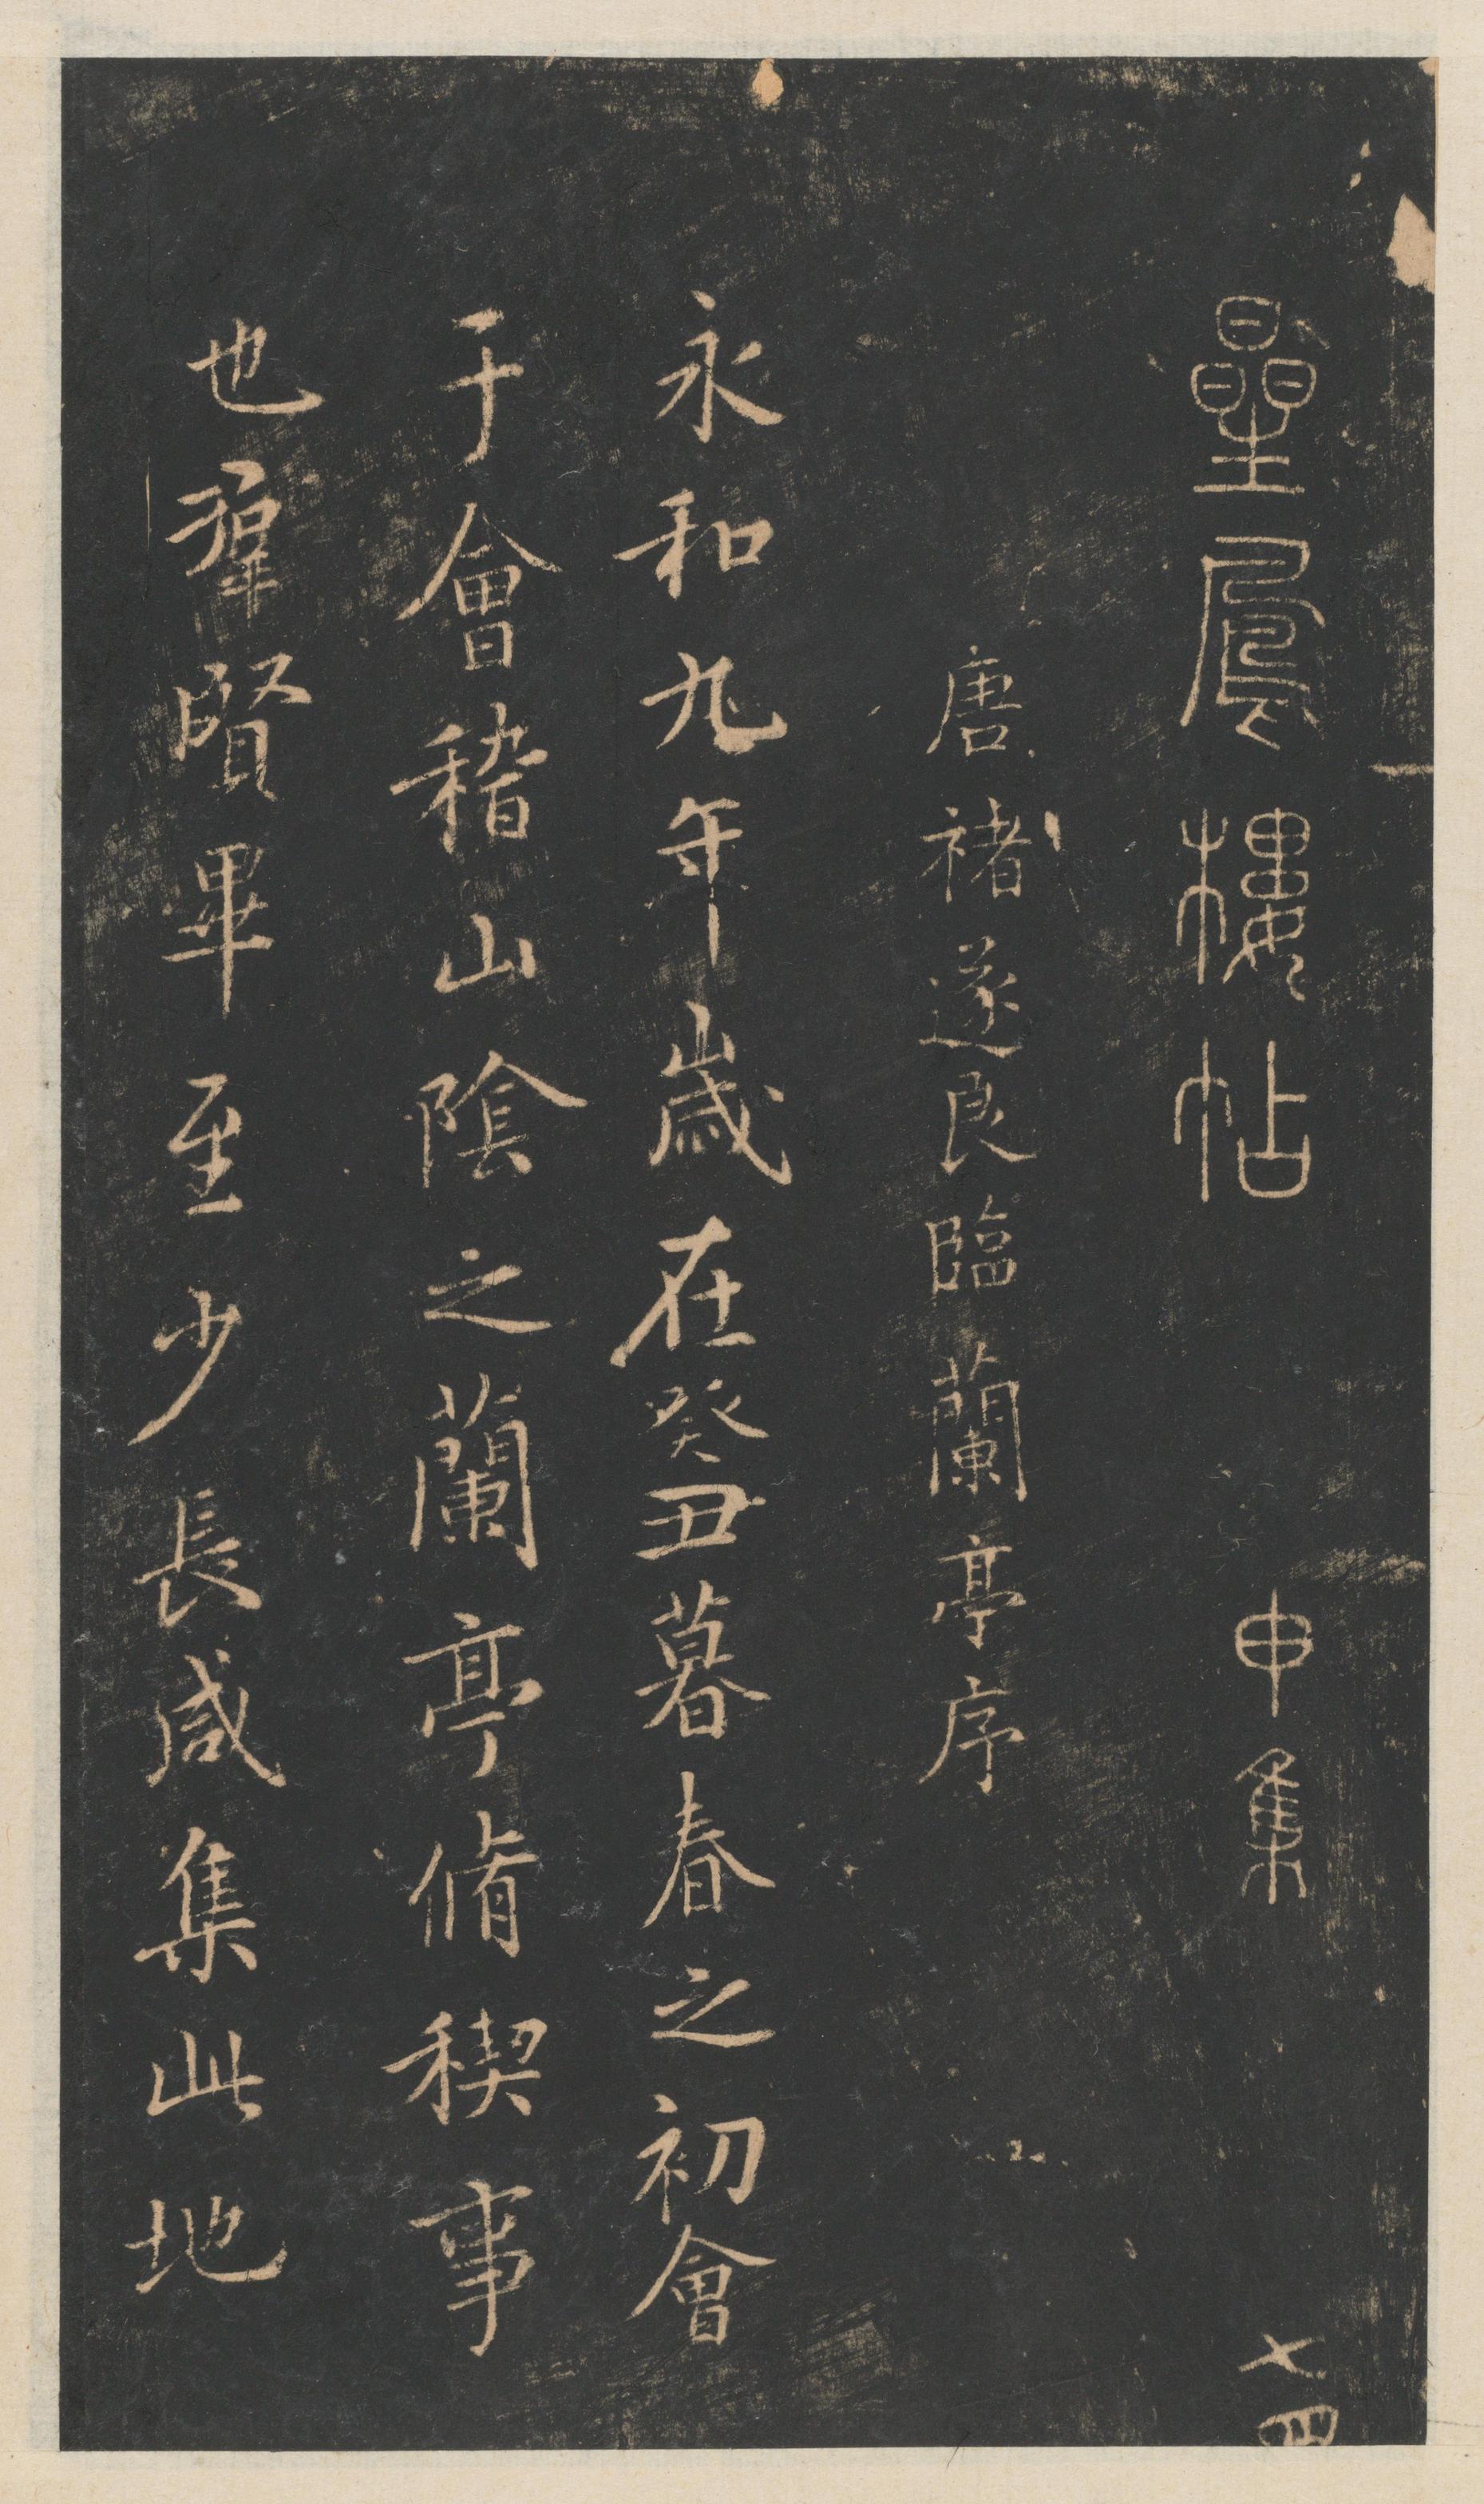 星鳳樓帖 申集 七四
唐褚遂良臨蘭亭序
永和九年歲在癸丑暮春之初會
于會稽山陰之蘭亭脩稧事
也羣賢畢至少長咸集此地